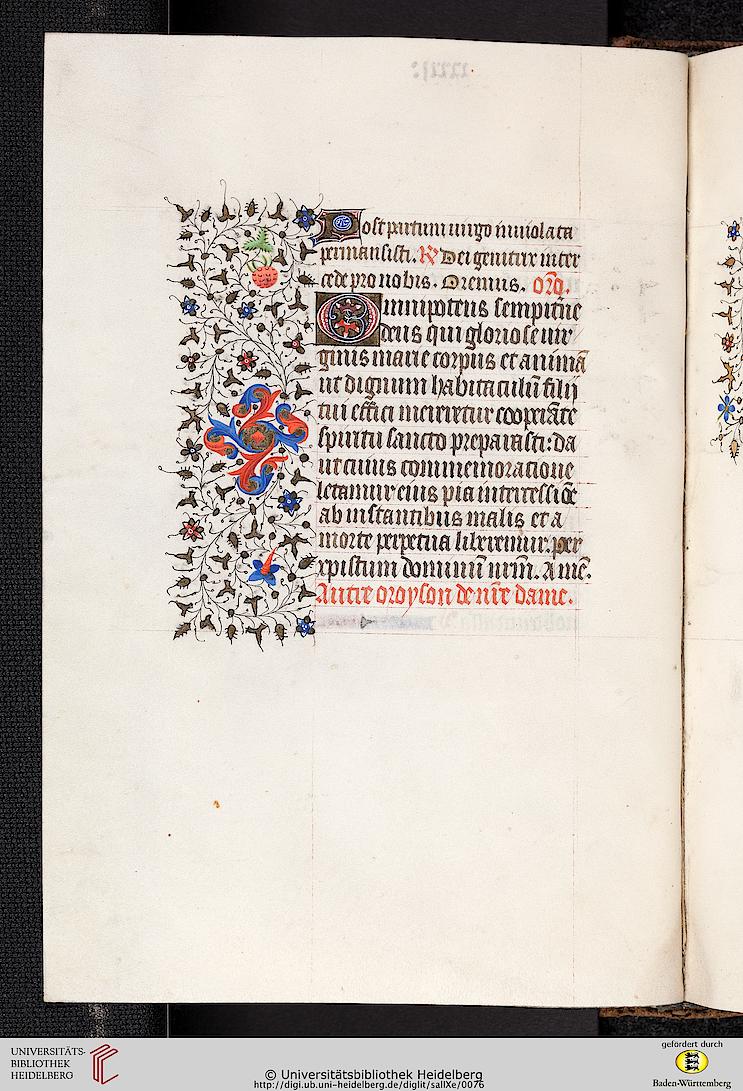 Post partum uirgo inuiolata
permansisti. R Dei genitrix inter
cede pro nobis. Oremus. orõ.
Omnipotens sempitne
deus qui gloriose uir
ginis marie corpus et animã
ut dignum habitaculũ filij
tui effici mereretur cooperãte
spiritu sancto preparasti: da
ut cuius commemoratione
letamur eius pia intercessiõe
ab instantibus malis et a
morte perpetua liberemur. per
xpistum dominũ nr̃m. Amẽ.
Autre oroyson de nr̃e dame.
UNIVERSITÄTS-
BIBLIOTHEK
HEIDELBERG
© Universitätsbibliothek Heidelberg
http://digi.ub.uni-heidelberg.de/diglit/salIXe/0076
gefördert durch
Baden-Württemberg